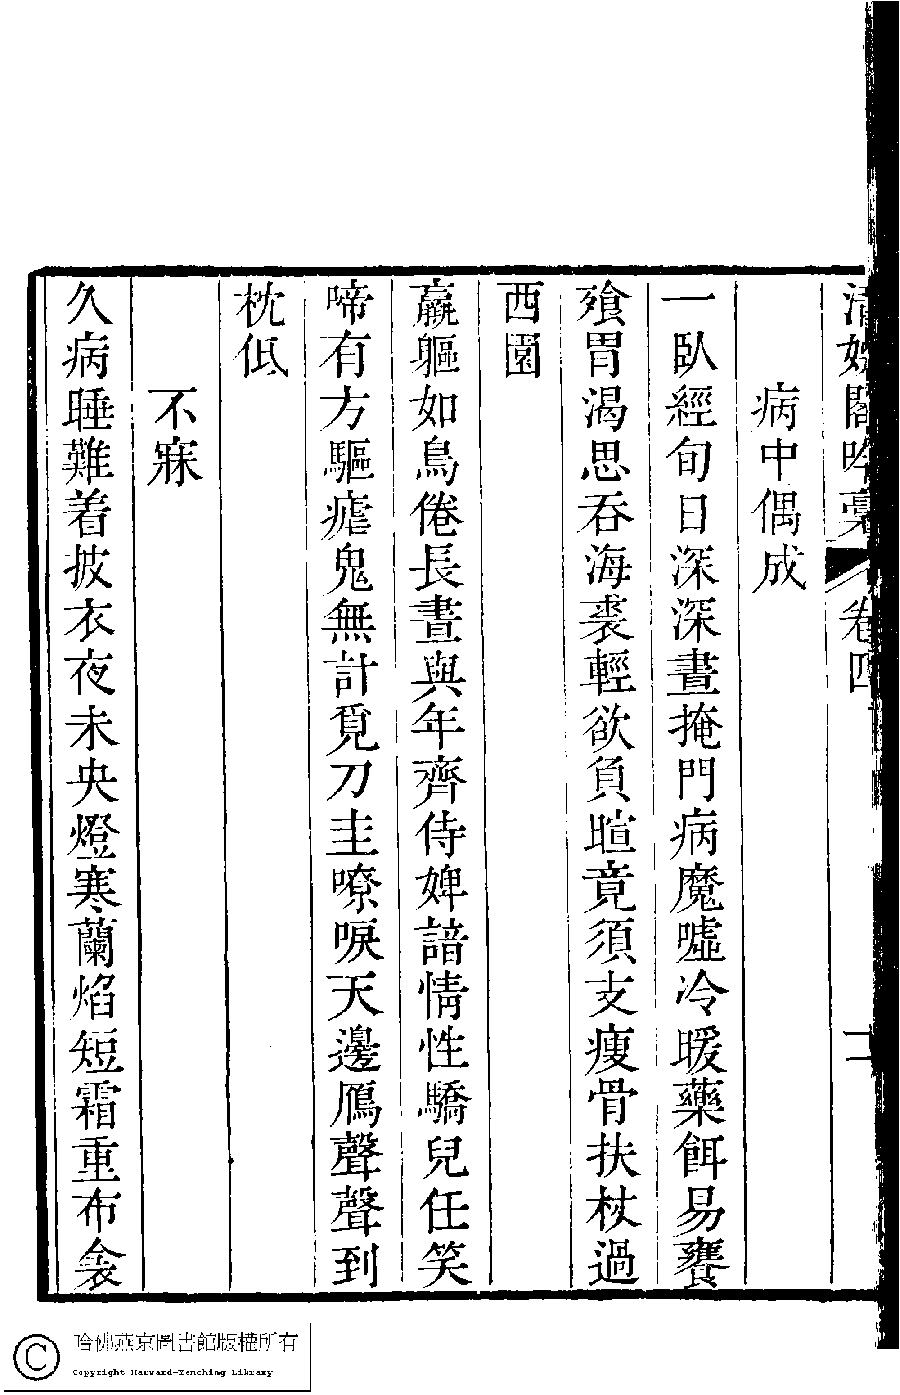 清娛閣吟稾 卷四 二
病中偶成
一臥經旬日深深晝掩門病魔噓冷暖藥餌易饔
飱胃渴思吞海裘輕欲負暄竟須支瘦骨扶杖過
西園
羸軀如鳥倦長晝與年齊侍婢諳情性驕兒任笑
啼有方驅瘧鬼無計覓刀圭嘹唳天邊鴈聲聲到
枕低
不寐
久病睡難着披衣夜未央燈寒蘭焰短霜重布衾
哈佛燕京圖書館版權所有
Copyright Harvard-Yenching Library